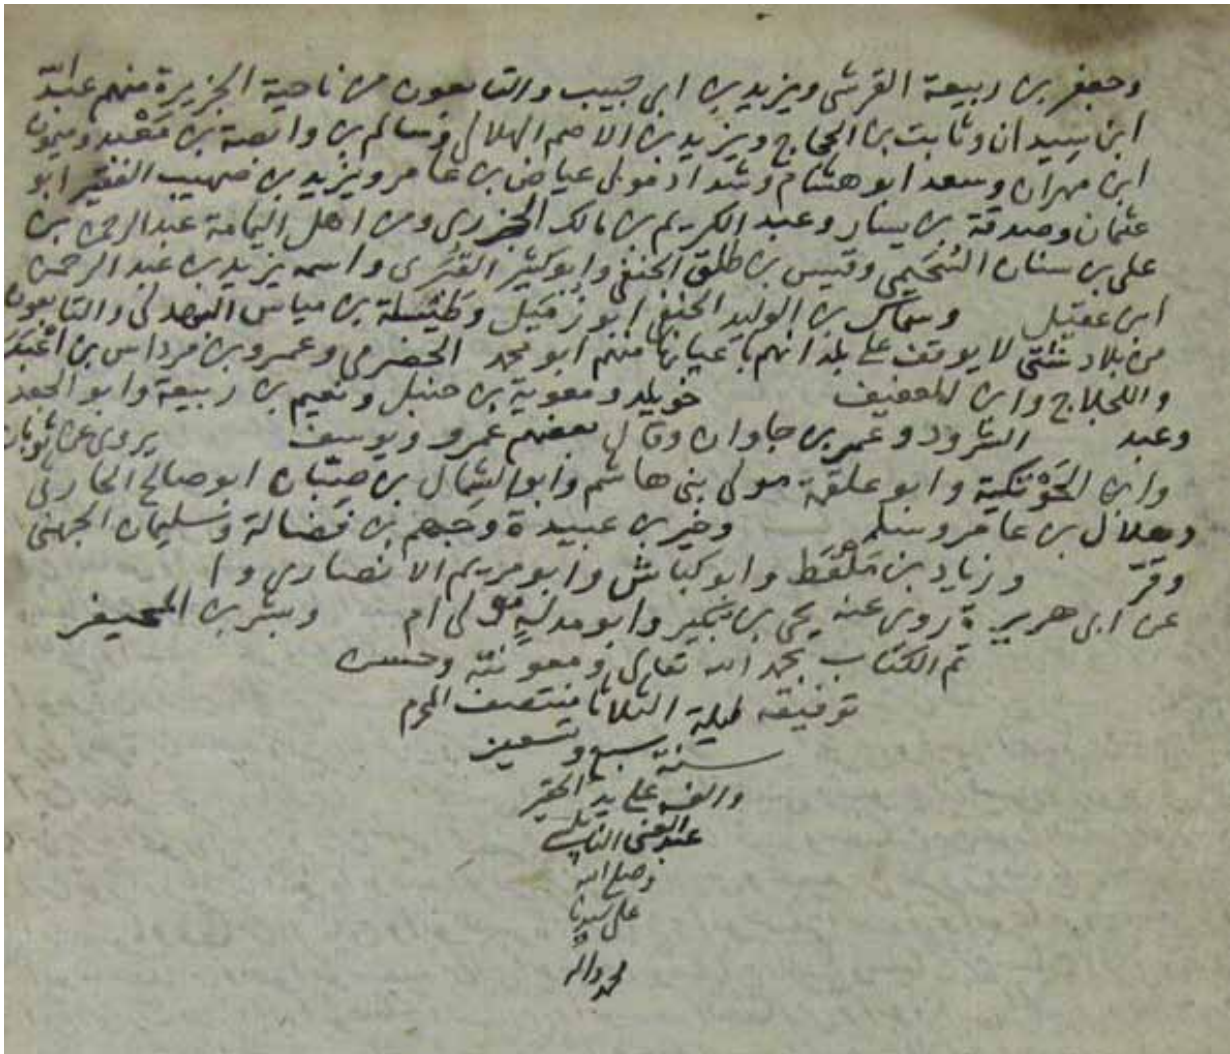 وجعفر بن ربيعة القرشي ويزيد بن ابي حبيب والتابعون من ناحية الجزيرة منهم عبد الله
ابن سيدان وثابت بن الحجاج ويزيد بن الاصم الهلالي وسالم بن وابصة بن معبد وميمون
ابن مهران وسعد ابو هشام وشداد مولى عياض بن عامر ويزيد بن صهيب الفقير ابو
عثمان وصدقة بن يسار وعبد الكريم بن مالك الجزري ومن اهل اليمامة عبد الرحمن بن
علي بن سنان السحيمي وقيس بن طلق الحنفي وابو كثير واسمه يزيد بن عبد الرحمن
ابن عقيل وسماك بن الوليد الحنفي ابو زميل وطيسلة بن مياس والتابعون
من بلاد شتى لا يوقف على بلدانهم باعيانها منهم ابو محمد الحضرمي وعمرو بن مرداس بن
واللجلاج وابن خويلد ومعوية بن حنبل ونعيم بن ربيعة وابو الجعد
وعبد الشرود وعمر بن جاوان وقال بعضهم عمرو ويوسف يروي عن ثوبان
وابن الحوتكية وابو علقمة مولى بني هاشم وابو الشمال بن ابو صالح الحارثي
وهلال بن عامر وسلم وخير بن عبيدة وجهم بن فضالة وسليمان الجهني
وقر وزياد بن ملقط وابو كباش وابو مريم الانصاري وا
عن ابي هريرة روى عنه يحي بن وابو مدلة مولى ام وبشر بن المحيفر
تم الكتاب بحمد الله تعالى ومعونته وحسن
توفيقه ليلة الثلاثا منتصف المحرم
سنة سبع وتسعين
والف على يد الحقير
عبد الغني النابلسي
وصلى الله
على سيدنا
محمد واله